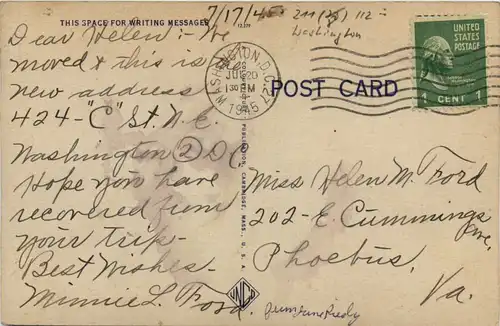 THIS SPACE FOR WRITING MESSAGES
7/17/45
Washington
Dear Helen:- We
moved & this is
new address
424-"C" St. N.E.
Washington 2 D.C.
Hope you have
recovered from
your trip-
Best Wishes-
Minnie L. Ford.
WASHINGTON, D.C.
JUL 20
PM
1945
POST CARD
UNITED STATES
POSTAGE
1 CENT 1
Miss Helen M. Ford
202-E. Cummings
Ave,
Phoebus,
Va.
PUBLICATION, CAMBRIDGE, MASS., U. S. A.